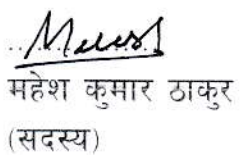 महेश कुमार ठाकुर
(सदस्य)